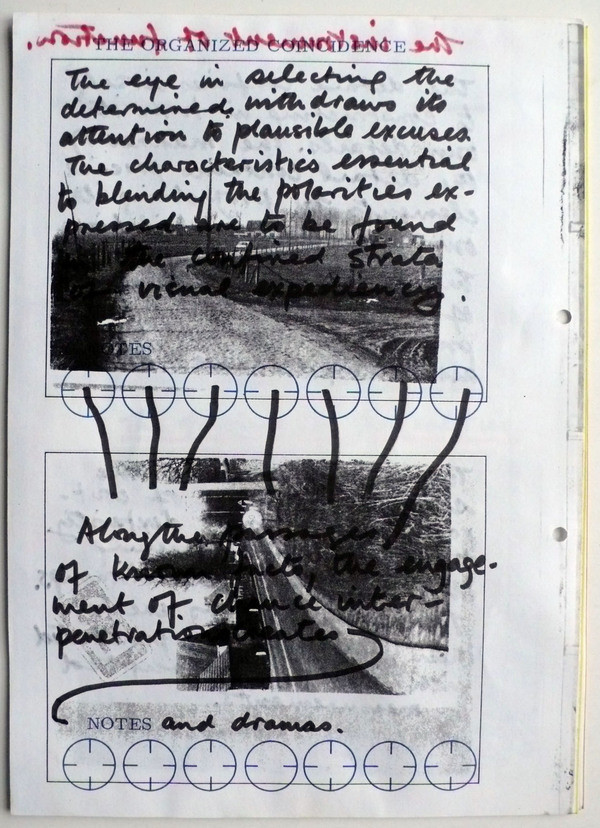 the instrument of function.
THE ORGANIZED COINCIDENCE
The eye in selecting the
determined, withdraws its
attention to plausible excuses.
The characteristics essential
to blending the polarities ex-
pressed are to be found
in the confined strata
visual expediency.
NOTES
Along the passages
of known facts, the engage-
ment of chance inter-
penetration creates
NOTES and dramas.